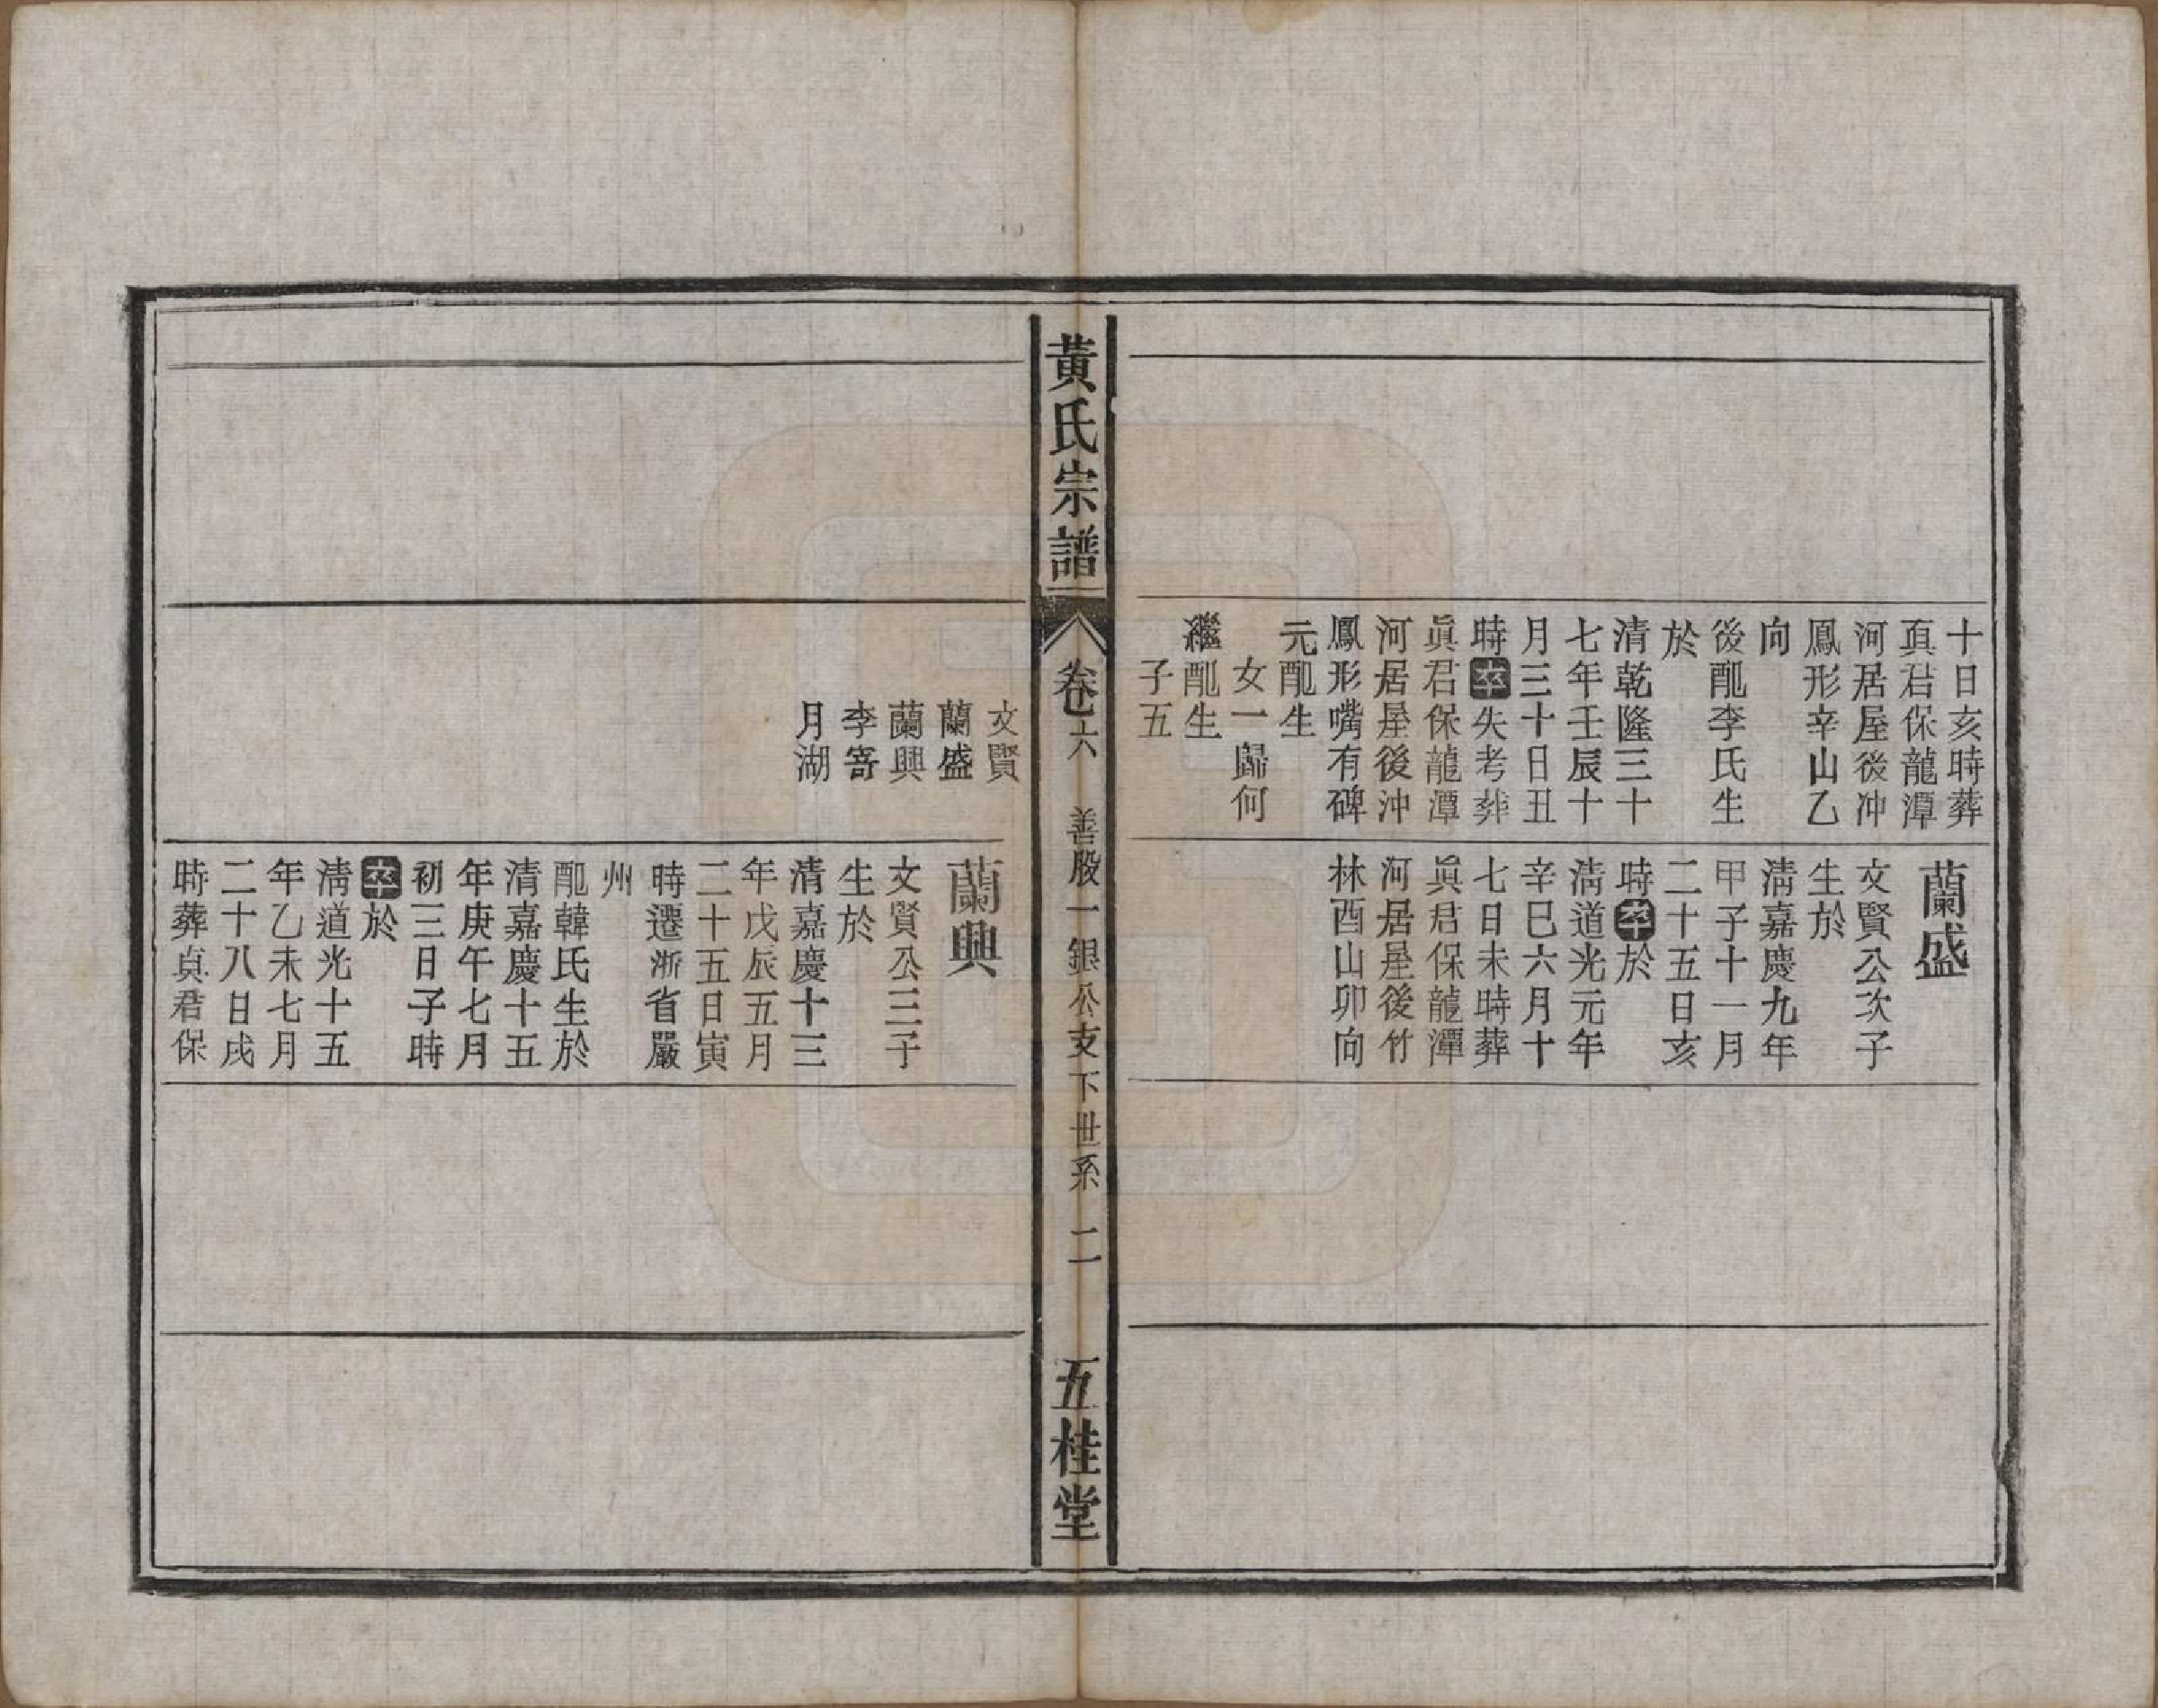 十日亥時葬
真君保龍潭
河居屋後冲
鳳形辛山乙
向
後配李氏生
於
清乾隆三十
七年壬辰十
月三十日丑
時卒失考葬
眞君保龍潭
河居屋後沖
鳳形嘴有碑
元配生
女一歸何
繼配生
子五
蘭盛
文賢公次子
生於
清嘉慶九年
甲子十一月
二十五日亥
時卒於
清道光元年
辛巳六月十
七日未時葬
眞君保龍潭
河居屋後竹
林酉山卯向
黃氏宗譜
卷六
善股一銀公支下世系
二
五桂堂
文賢
蘭盛
蘭興
李寄
月湖
蘭興
文賢公三子
生於
清嘉慶十三
年戊辰五月
二十五日寅
時遷浙省嚴
州
配韓氏生於
清嘉慶十五
年庚午七月
初三日子時
卒於
淸道光十五
年乙未七月
二十八日戌
時葬貞君保